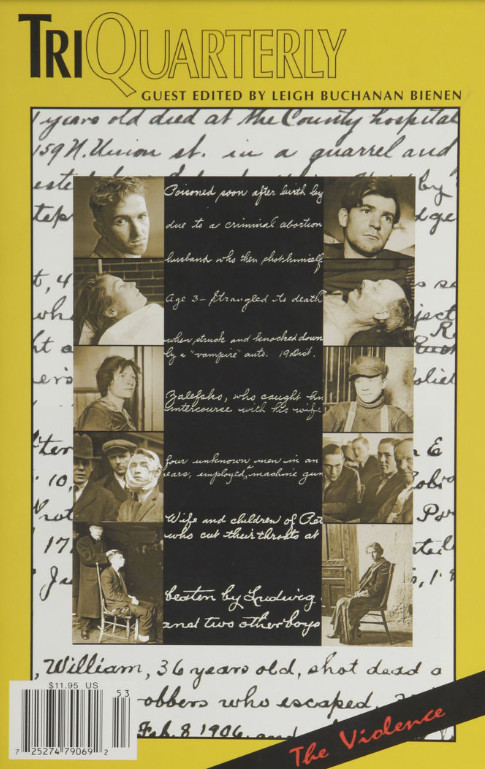 TRIQUARTERLY
GUEST EDITED BY LEIGH BUCHANAN BIENEN
years old died at the County hospital
159 N. Union st. in a quarrel and
by
Poisoned soon after birth by
due to a criminal abortion
husband who then shot himself
Age 3 – Strangled to death
when struck and knocked down
by a "vampire" auto. 19 Dist.
Zalefsko, who caught him
intercourse with his wife
four unknown men in an
ears, employed, machine gun
Wife and children of
who cut their throats at
beaten by Ludwig
and two other boys
, William, 36 years old, shot dead a
obbers who escaped.
Feb. 8 1906, and
$11.95 US
53
7 25274 79069 2
The Violence